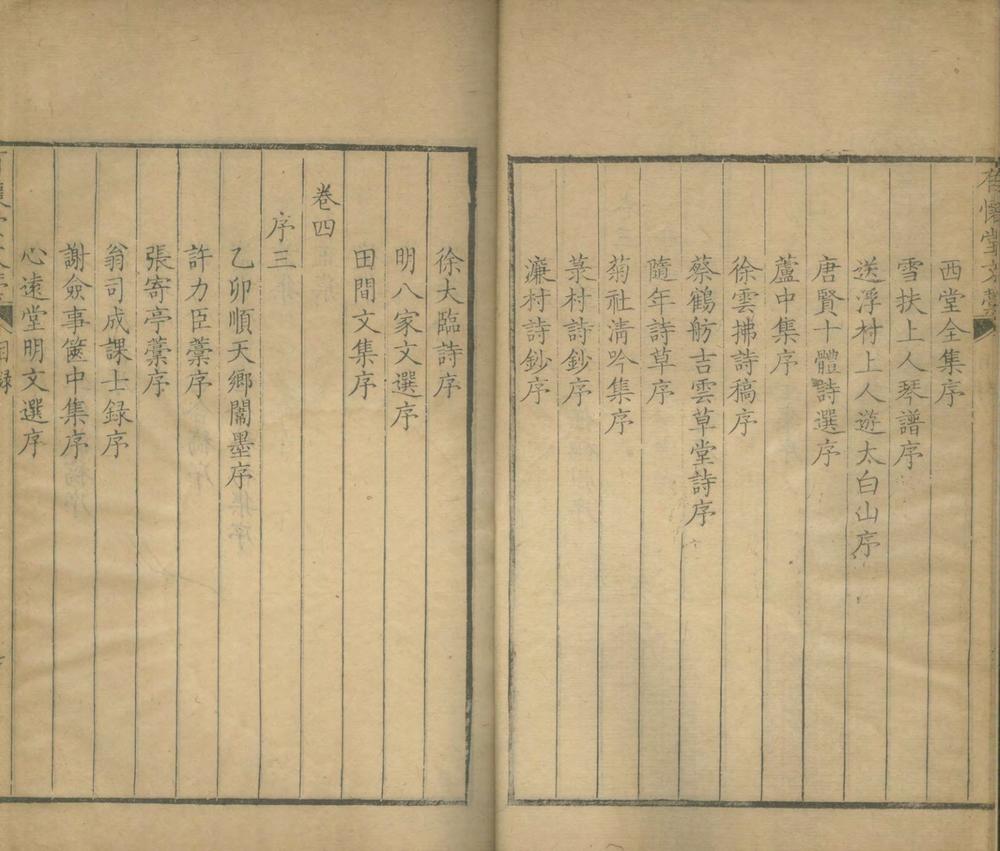 有懷堂文藁
西堂全集序
雪扶上人琴譜序
送浮村上人遊太白山序
唐賢十體詩選序
蘆中集序
徐雲拂詩稿序
蔡鶴舫吉雲草堂詩序
隨年詩草序
菊社淸吟集序
菉村詩鈔序
濂村詩鈔序
徐大臨詩序
明八家文選序
田間文集序
卷四
序三
乙卯順天鄉闈墨序
許力臣藁序
張寄亭藁序
翁司成課士録序
謝僉事篋中集序
心遠堂明文選序